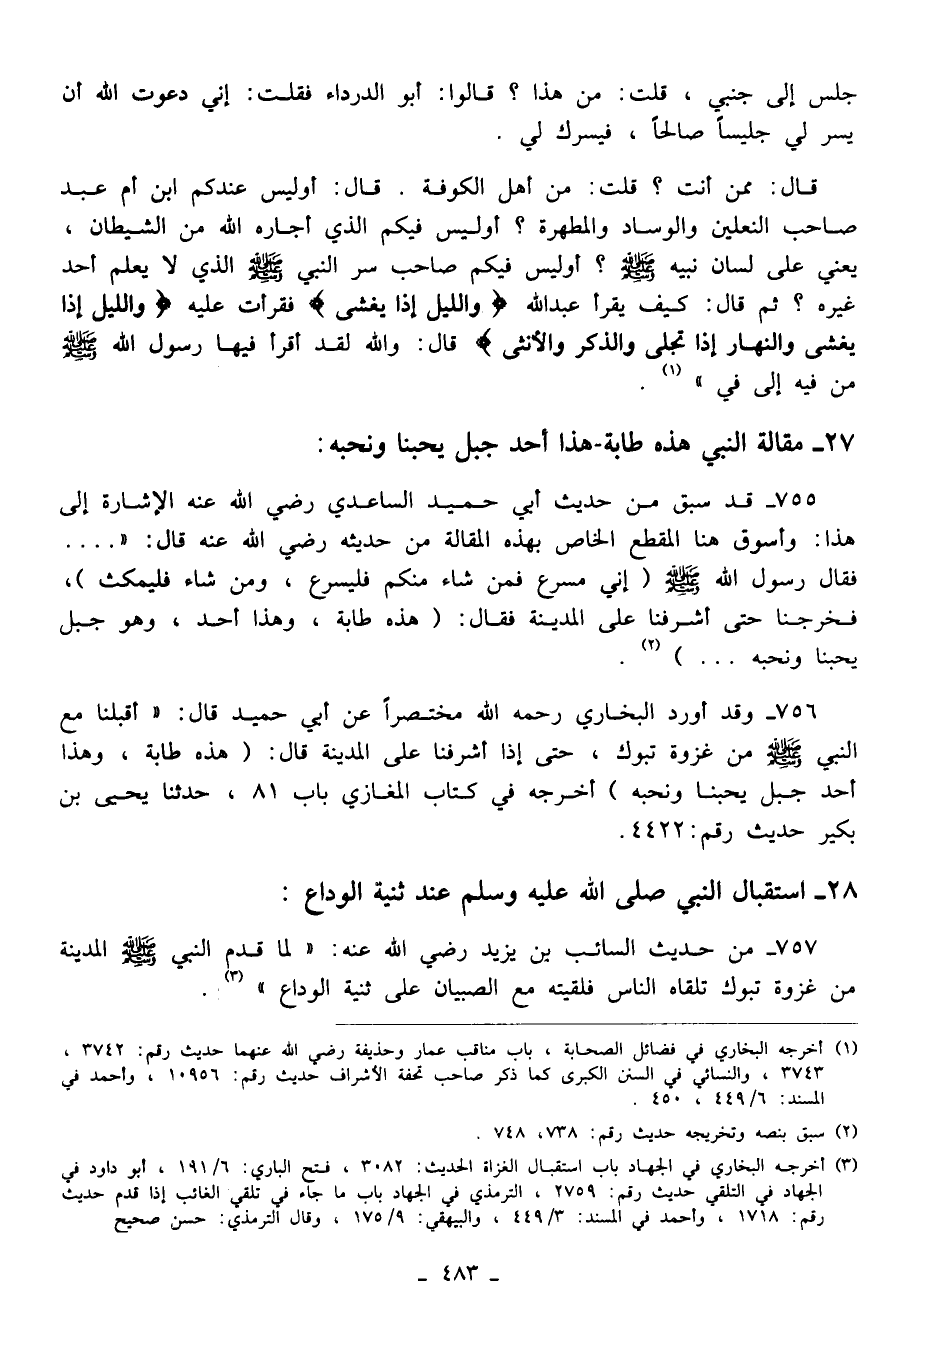 جلس إلى جنبي ، قلت: من هذا ؟ قالوا: أبو الدرداء فقلت: إني دعوت الله أن
يسر لي جليساً صالحاً ، فيسرك لي .
قال: ممن أنت ؟ قلت: من أهل الكوفة . قال: أوليس عندكم ابن أم عبد
صاحب النعلين والوساد والمطهرة ؟ أوليس فيكم الذي أجاره الله من الشيطان ،
يعني على لسان نبيه ﷺ ؟ أوليس فيكم صاحب سر النبي ﷺ الذي لا يعلم أحد
غيره ؟ ثم قال: كيف يقرأ عبدالله ﴿ والليل إذا يغشى ﴾ فقرأت عليه ﴿ والليل إذا
يغشى والنهار إذا تجلى والذكر والأنثى ﴾ قال: والله لقد أقرأ فيها رسول الله ﷺ
من فيه إلى في » (١) .
٢٧ـ مقالة النبي هذه طابة-هذا أحد جبل يحبنا ونحبه:
٧٥٥ـ قد سبق من حديث أبي حميد الساعدي رضي الله عنه الإشارة إلى
هذا: وأسوق هنا المقطع الخاص بهذه المقالة من حديثه رضي الله عنه قال: « ....
فقال رسول الله ﷺ ( إني مسرع فمن شاء منكم فليسرع ، ومن شاء فليمكث )،
فخرجنا حتى أشرفنا على المدينة فقال: ( هذه طابة ، وهذا أحد ، وهو جبل
يحبنا ونحبه ... ) (٢) .
٧٥٦ـ وقد أورد البخاري رحمه الله مختصراً عن أبي حميد قال: « أقبلنا مع
النبي ﷺ من غزوة تبوك ، حتى إذا أشرفنا على المدينة قال: ( هذه طابة ، وهذا
أحد جبل يحبنا ونحبه ) أخرجه في كتاب المغازي باب ٨١ ، حدثنا يحيى بن
بكير حديث رقم: ٤٤٢٢.
٢٨ـ استقبال النبي صلى الله عليه وسلم عند ثنية الوداع :
٧٥٧ـ من حديث السائب بن يزيد رضي الله عنه: « لما قدم النبي ﷺ المدينة
من غزوة تبوك تلقاه الناس فلقيته مع الصبيان على ثنية الوداع » (٣) .
(١) أخرجه البخاري في فضائل الصحابة ، باب مناقب عمار وحذيفة رضي الله عنهما حديث رقم: ٣٧٤٢ ،
٣٧٤٣ ، والنسائي في السنن الكبرى كما ذكر صاحب تحفة الأشراف حديث رقم: ١٠٩٥٦ ، وأحمد في
المسند: ٤٤٩/٦ ، ٤٥٠ .
(٢) سبق بنصه وتخريجه حديث رقم: ٧٣٨، ٧٤٨ .
(٣) أخرجه البخاري في الجهاد باب استقبال الغزاة الحديث: ٣٠٨٢ ، فتح الباري: ١٩١/٦ ، أبو داود في
الجهاد في التلقي حديث رقم: ٢٧٥٩ ، الترمذي في الجهاد باب ما جاء في تلقي الغائب إذا قدم حديث
رقم: ١٧١٨ ، وأحمد في المسند: ٤٤٩/٣ ، والبيهقي: ١٧٥/٩ ، وقال الترمذي: حسن صحيح
ـ ٤٨٣ ـ